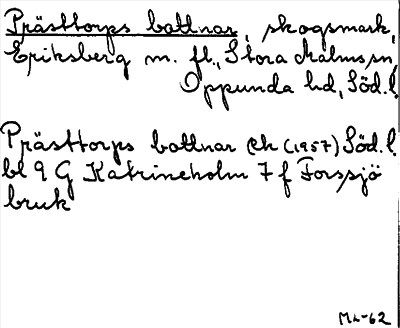 Prästtorps bottnar, skogsmark,
Eriksberg m. fl., Stora Malms sn,
Oppunda hd, Söd. l.
Prästtorps bottnar Ek (1957) Söd. l.
bl 9 G Katrineholm 7 f Forssjö
bruk
ML-62